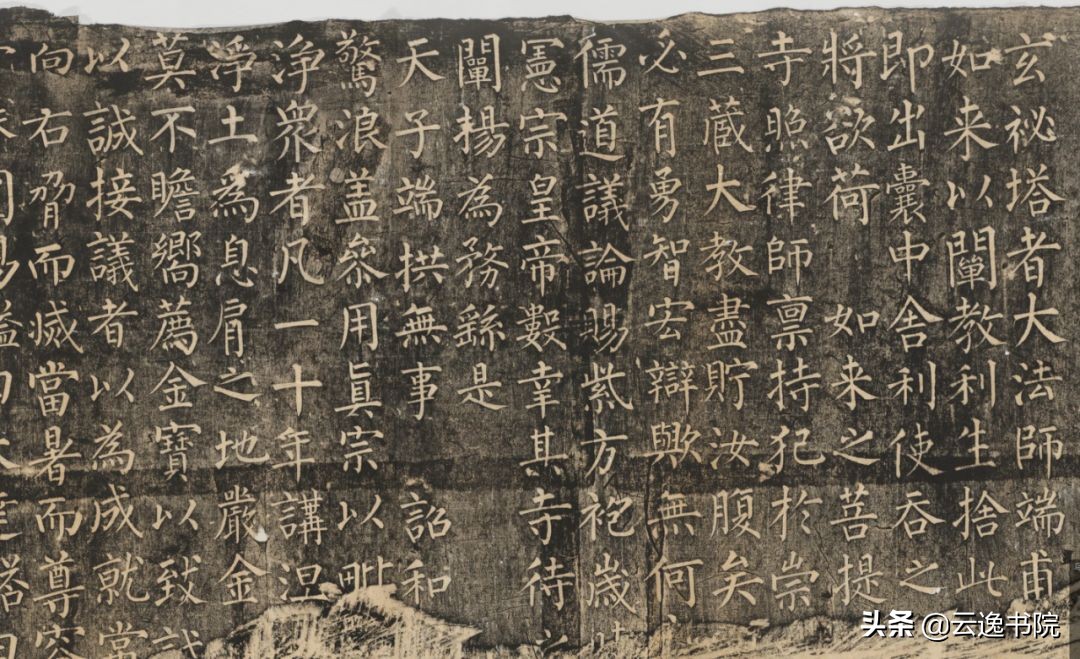 玄祕塔者大法師端甫
如来以闡教利生捨此
即出囊中舍利使吞之
將欲荷 如来之菩提
寺照律師禀持犯於崇
三蔵大教盡貯汝腹矣
必有勇智宏辯歟無何
儒道議論賜紫方袍歳
憲宗皇帝數幸其寺待
闡揚為務繇是
天子端拱無事 詔和
驚浪盖叅用真宗以毗
浄衆者凡一十年講涅
浄土為息肩之地嚴金
莫不瞻嚮薦金寶以致
以誠接議者以為成就常
向右脅而滅當暑而尊容
头条 @云逸书院